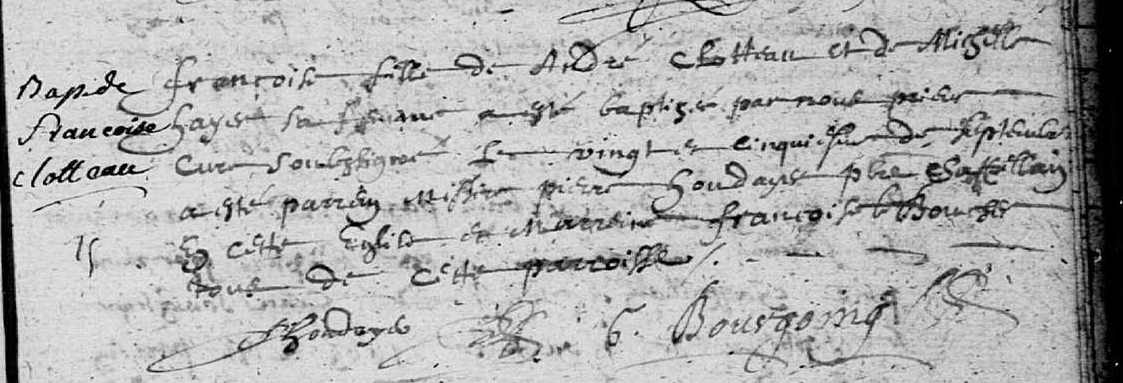 Bap. de
francoise
clotteau
francoise fille de André Clotteau et de Michelle
hayes sa femme a esté baptizée par nous prieur
Curé soubzsigné Le vingt et cinquiesme de septembre
a esté parrein Missire pierre houdayer pbre Chappellain
En cette Eglise et Marreine francoise le Boucher
tous de cette parroisse /.
15
houdayer
G. Bourgoing